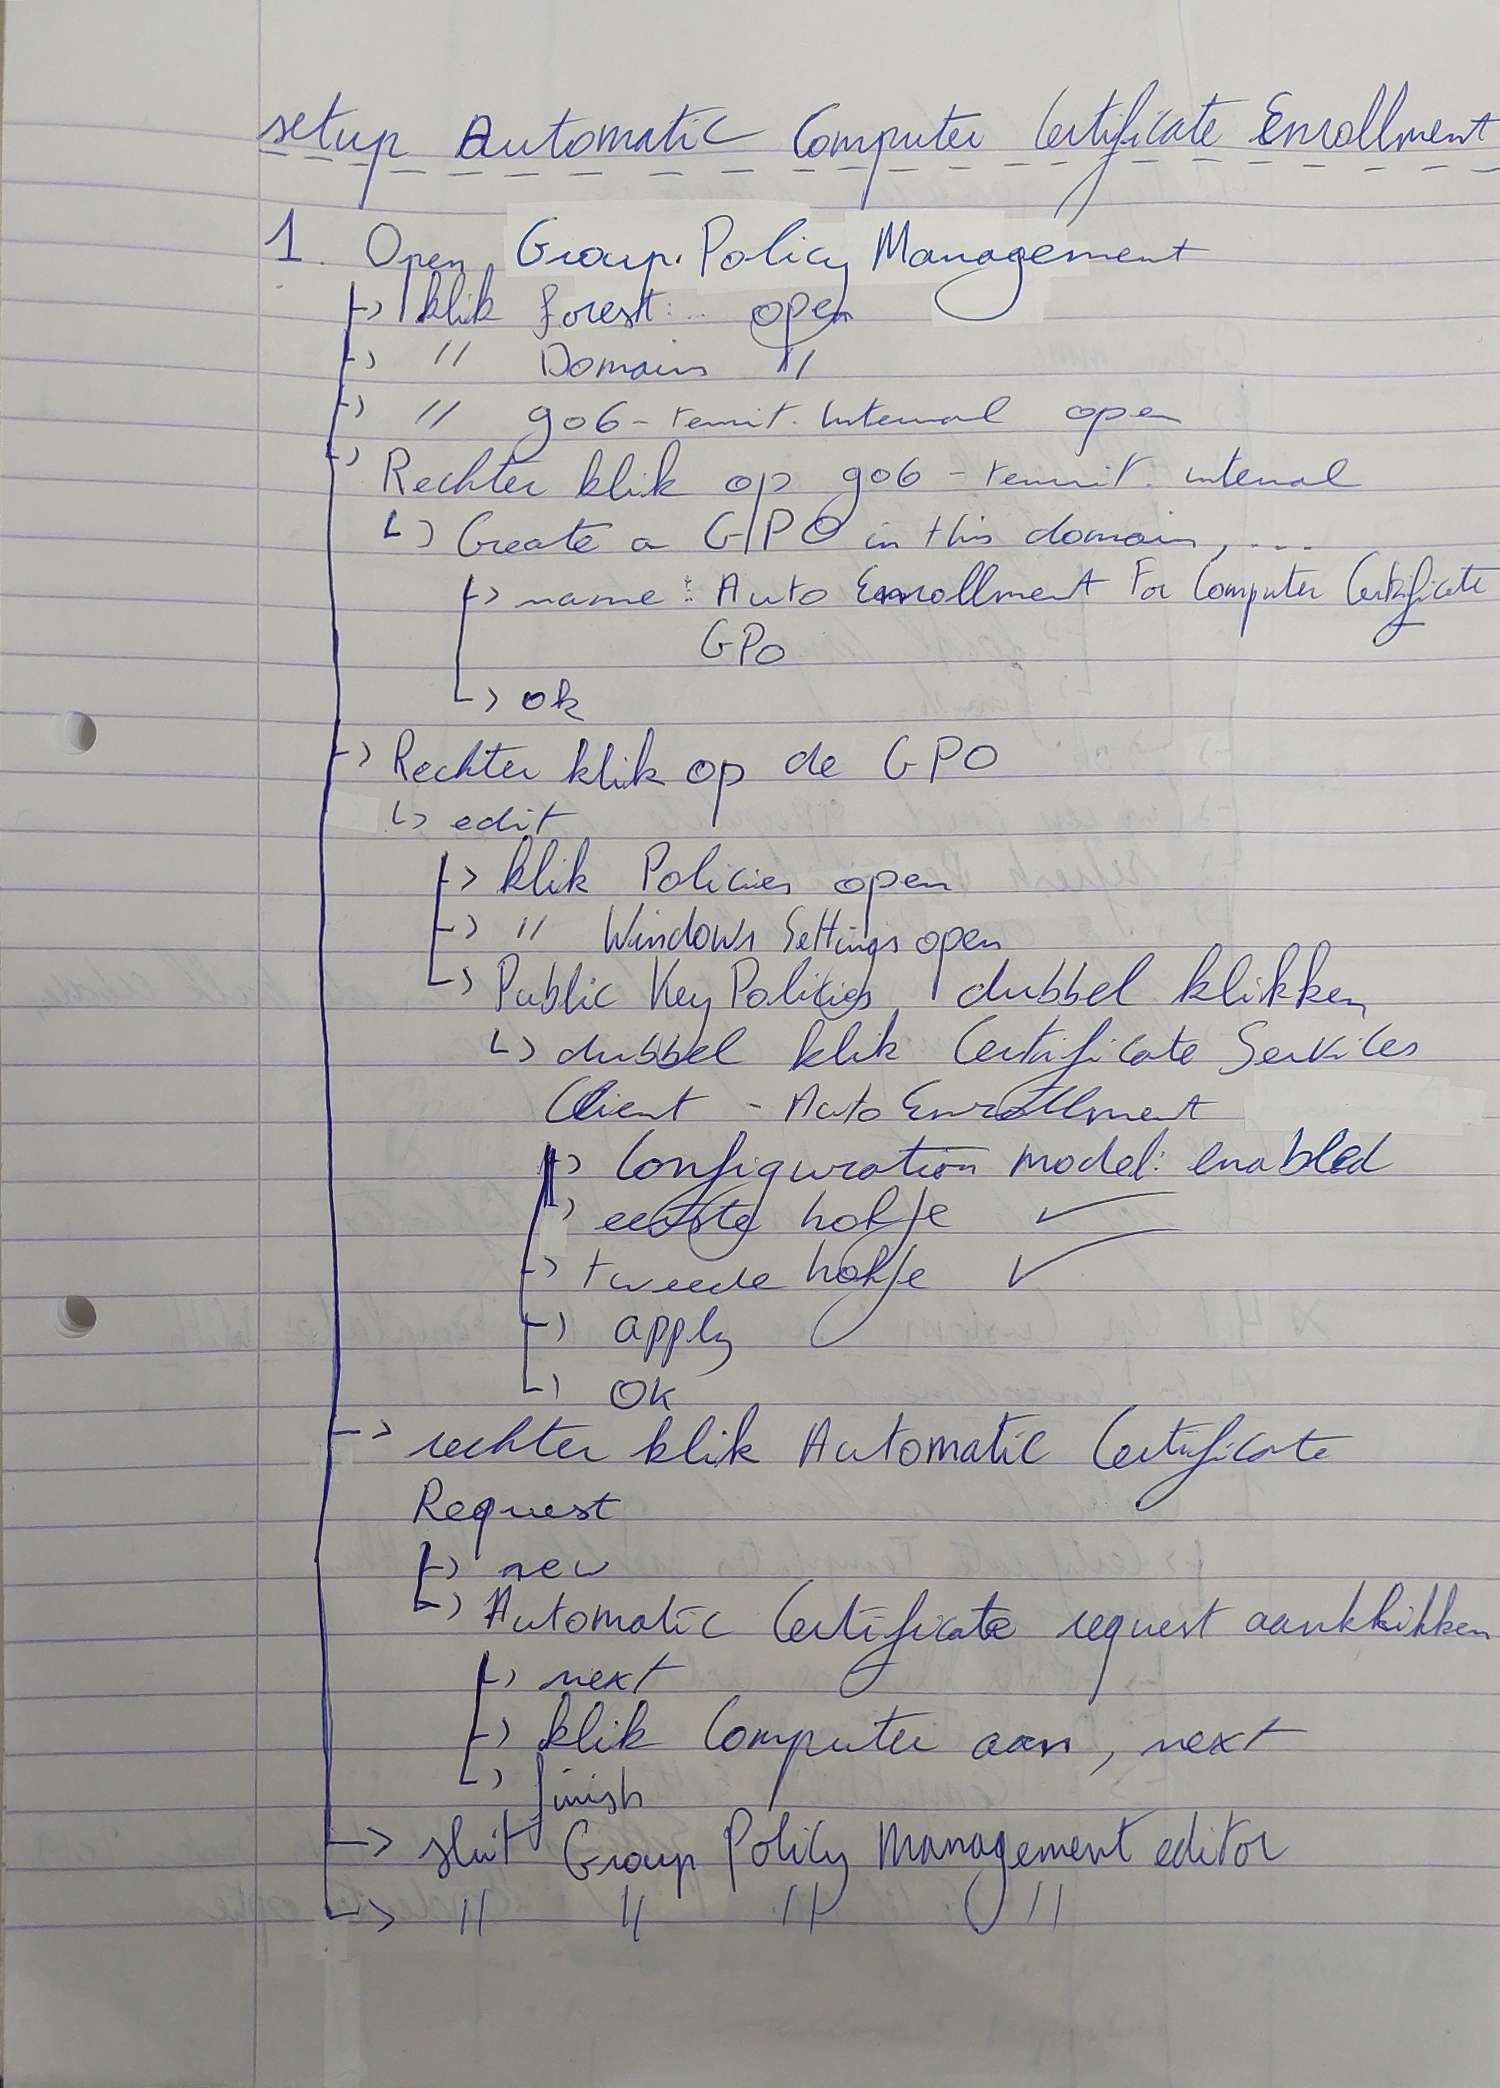 setup Automatic Computer Certificate Enrollment
1. Open Group Policy Management
↳ klik forest: ... open
↳ " Domains "
↳ " g06-remit.internal open
↳ Rechter klik op g06-remit.internal
↳ Create a GPO in this domain, ....
↳ name: Auto Enrollment For Computer Certificate
GPO
↳ ok
↳ Rechter klik op de GPO
↳ edit
↳ klik Policies open
↳ " Windows Settings open
↳ Public Key Policies dubbel klikken
↳ dubbel klik Certificate Services
Client - Auto Enrollment
↳ Configuration model: enabled
↳ eerste hokje ✓
↳ tweede hokje ✓
↳ apply
↳ OK
↳ rechter klik Automatic Certificate
Request
↳ new
↳ Automatic Certificate request aanklikken
↳ next
↳ klik Computer aan, next
↳ finish
↳ sluit Group Policy Management editor
↳ " " " "